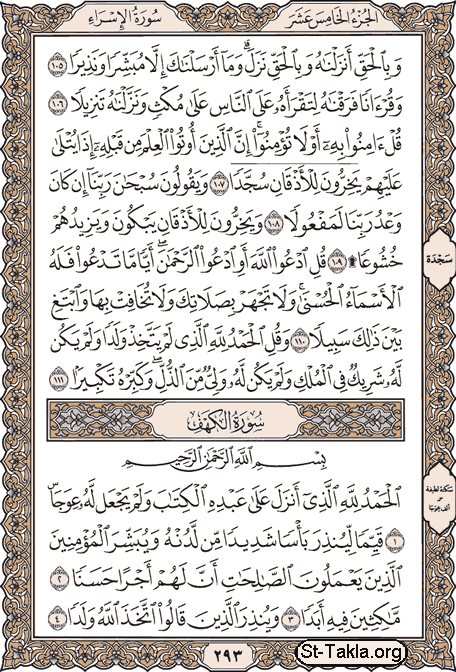 الجُزْءُ الخَامِسَ عَشَرَ
سُورَةُ الإِسْرَاءِ
وَبِٱلْحَقِّ أَنزَلْنَٰهُ وَبِٱلْحَقِّ نَزَلَۗ وَمَآ أَرْسَلْنَٰكَ إِلَّا مُبَشِّرًا وَنَذِيرًا ١٠٥
وَقُرْءَانًا فَرَقْنَٰهُ لِتَقْرَأَهُۥ عَلَى ٱلنَّاسِ عَلَىٰ مُكْثٍ وَنَزَّلْنَٰهُ تَنزِيلًا ١٠٦
قُلْ ءَامِنُوا۟ بِهِۦٓ أَوْ لَا تُؤْمِنُوٓا۟ۚ إِنَّ ٱلَّذِينَ أُوتُوا۟ ٱلْعِلْمَ مِن قَبْلِهِۦٓ إِذَا يُتْلَىٰ
عَلَيْهِمْ يَخِرُّونَ لِلْأَذْقَانِ سُجَّدًا ١٠٧ وَيَقُولُونَ سُبْحَٰنَ رَبِّنَآ إِن كَانَ
وَعْدُ رَبِّنَا لَمَفْعُولًا ١٠٨ وَيَخِرُّونَ لِلْأَذْقَانِ يَبْكُونَ وَيَزِيدُهُمْ
خُشُوعًا ۩ ١٠٩ قُلِ ٱدْعُوا۟ ٱللَّهَ أَوِ ٱدْعُوا۟ ٱلرَّحْمَٰنَۖ أَيًّا مَّا تَدْعُوا۟ فَلَهُ
سَجْدَة
ٱلْأَسْمَآءُ ٱلْحُسْنَىٰۚ وَلَا تَجْهَرْ بِصَلَاتِكَ وَلَا تُخَافِتْ بِهَا وَٱبْتَغِ
بَيْنَ ذَٰلِكَ سَبِيلًا ١١٠ وَقُلِ ٱلْحَمْدُ لِلَّهِ ٱلَّذِى لَمْ يَتَّخِذْ وَلَدًا وَلَمْ يَكُن
لَّهُۥ شَرِيكٌ فِى ٱلْمُلْكِ وَلَمْ يَكُن لَّهُۥ وَلِىٌّ مِّنَ ٱلذُّلِّۖ وَكَبِّرْهُ تَكْبِيرًۢا ١١١
سُورَةُ الكَهْفِ
بِسْمِ ٱللَّهِ ٱلرَّحْمَٰنِ ٱلرَّحِيمِ
ٱلْحَمْدُ لِلَّهِ ٱلَّذِىٓ أَنزَلَ عَلَىٰ عَبْدِهِ ٱلْكِتَٰبَ وَلَمْ يَجْعَل لَّهُۥ عِوَجَاۜ
سكتة لطيفة
على
ألف عوجا
١ قَيِّمًا لِّيُنذِرَ بَأْسًا شَدِيدًا مِّن لَّدُنْهُ وَيُبَشِّرَ ٱلْمُؤْمِنِينَ
ٱلَّذِينَ يَعْمَلُونَ ٱلصَّٰلِحَٰتِ أَنَّ لَهُمْ أَجْرًا حَسَنًا ٢
مَّٰكِثِينَ فِيهِ أَبَدًا ٣ وَيُنذِرَ ٱلَّذِينَ قَالُوا۟ ٱتَّخَذَ ٱللَّهُ وَلَدًا ٤
٢٩٣
St-Takla.org